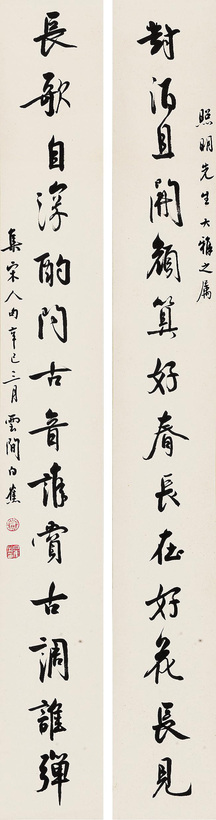 照明先生大雅之屬
對酒且開顏算好春長在好花長見
長歌自深酌問古音誰賞古調誰彈
集宋人句辛巳三月雲間白蕉